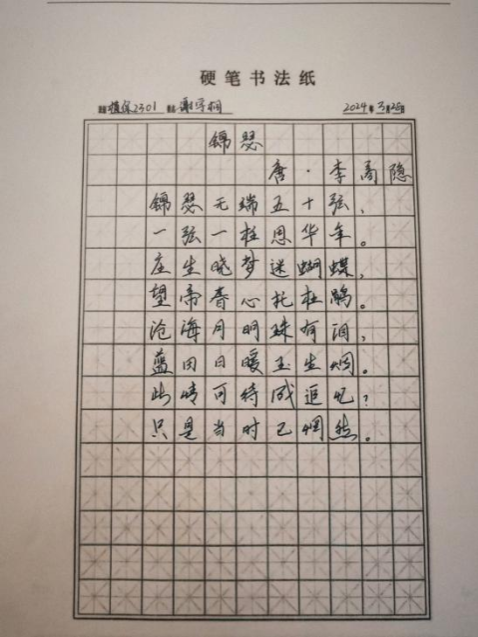 硬笔书法纸
植保2301 谢宇桐 2024年3月26日
锦瑟
唐·李商隐
锦瑟无端五十弦，
一弦一柱思华年。
庄生晓梦迷蝴蝶，
望帝春心托杜鹃。
沧海月明珠有泪，
蓝田日暖玉生烟。
此情可待成追忆？
只是当时已惘然。